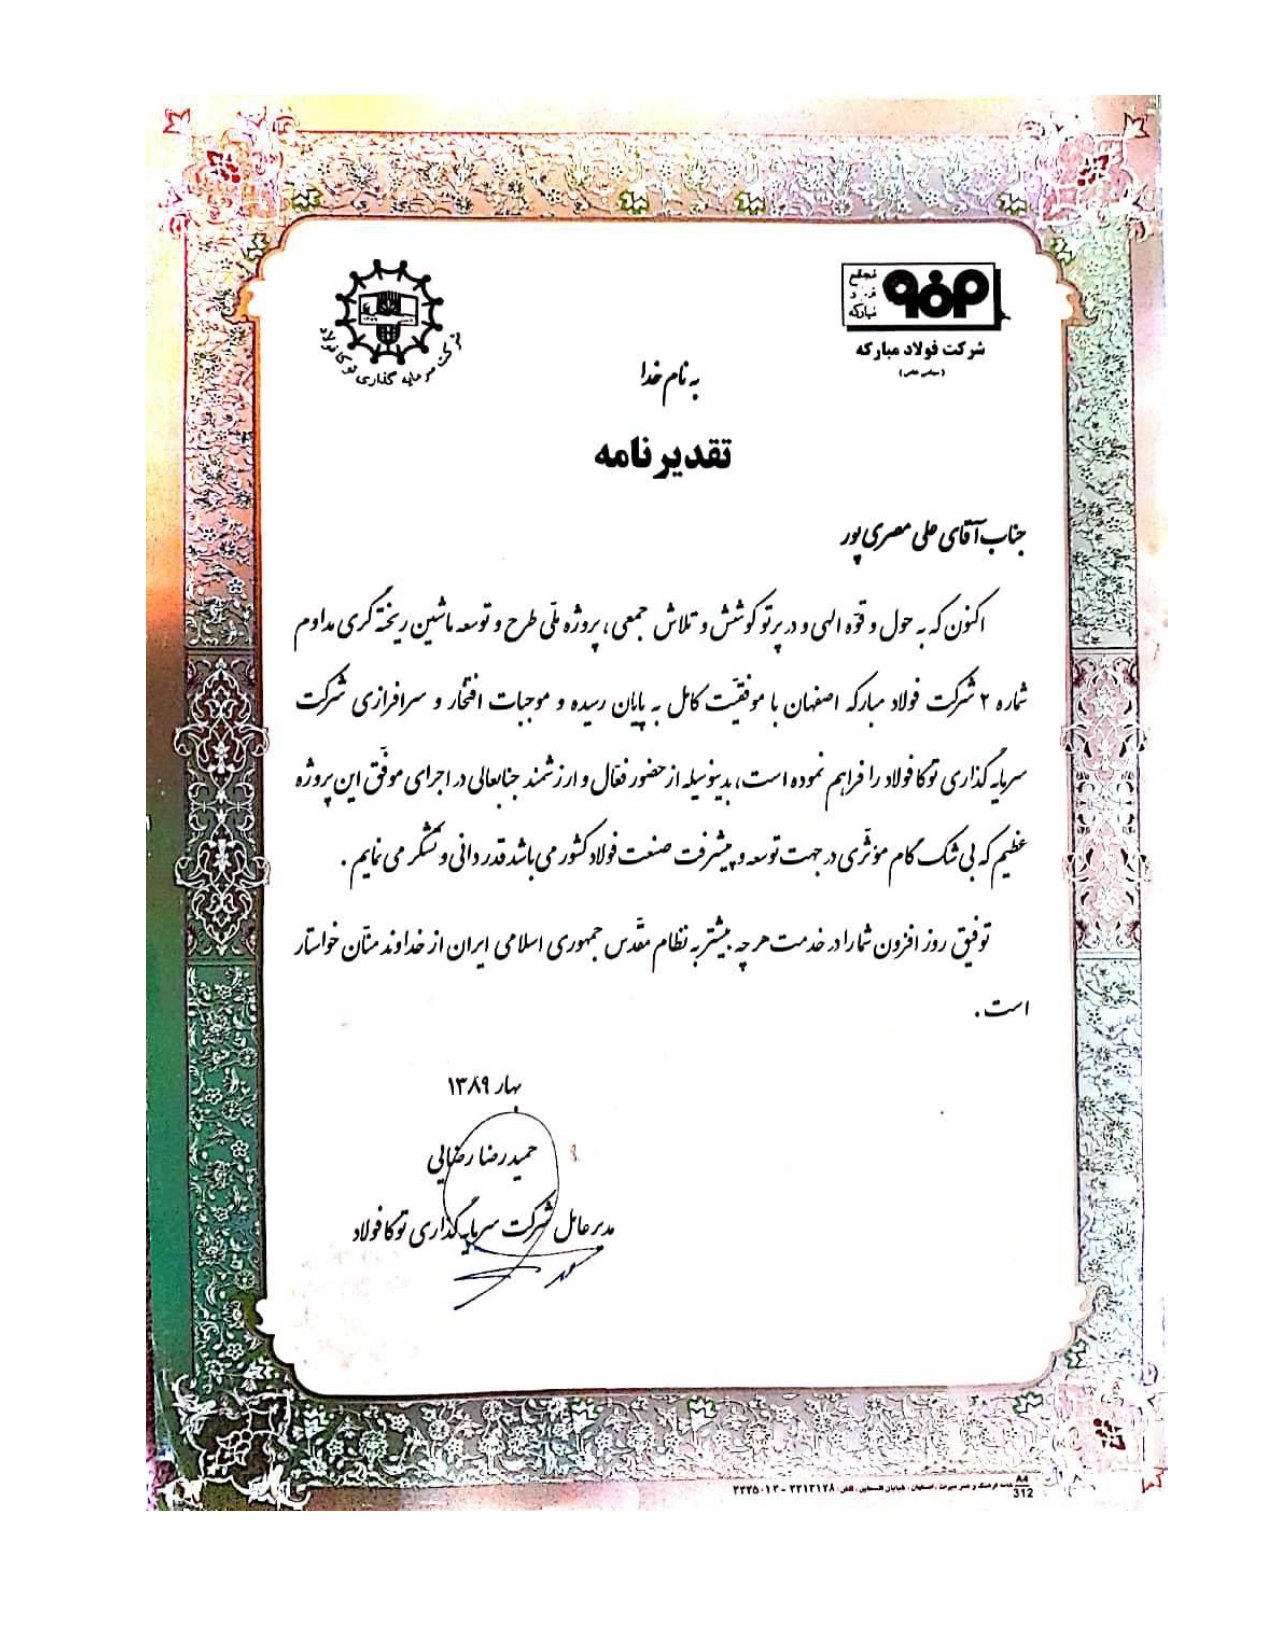 مجتمع
فولاد
مبارکه
شرکت فولاد مبارکه
(سهامی عام)
شرکت سرمایه گذاری توکا فولاد
به نام خدا
تقدیرنامه
جناب آقای علی مصری پور
اکنون که به حول و قوّه الهی و در پرتو کوشش و تلاش جمعی، پروژه ملّی طرح و توسعه ماشین ریخته گری مداوم
شماره ۲ شرکت فولاد مبارکه اصفهان با موفقیّت کامل به پایان رسیده و موجبات افتخار و سرافرازی شرکت
سرمایه گذاری توکا فولاد را فراهم نموده است، بدینوسیله از حضور فعّال و ارزشمند جنابعالی در اجرای موفّق این پروژه
عظیم که بی شک گام مؤثّری در جهت توسعه و پیشرفت صنعت فولاد کشور می باشد قدردانی و تشکر می نمایم .
توفیق روز افزون شما را در خدمت هر چه بیشتر به نظام مقدّس جمهوری اسلامی ایران از خداوند منّان خواستار
است .
بهار ۱۳۸۹
حمیدرضا رضایی
مدیر عامل شرکت سرمایه گذاری توکا فولاد
A4
312
اصفهان ، خیابان فلسطین ، تلفن : ۲۲۱۲۱۲۸ - ۲۲۲۵۰۱۲